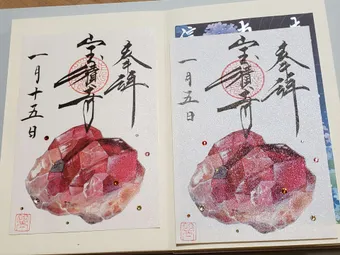 奉拝
宝積寺
一月十五日
奉拝
宝積寺
一月五日